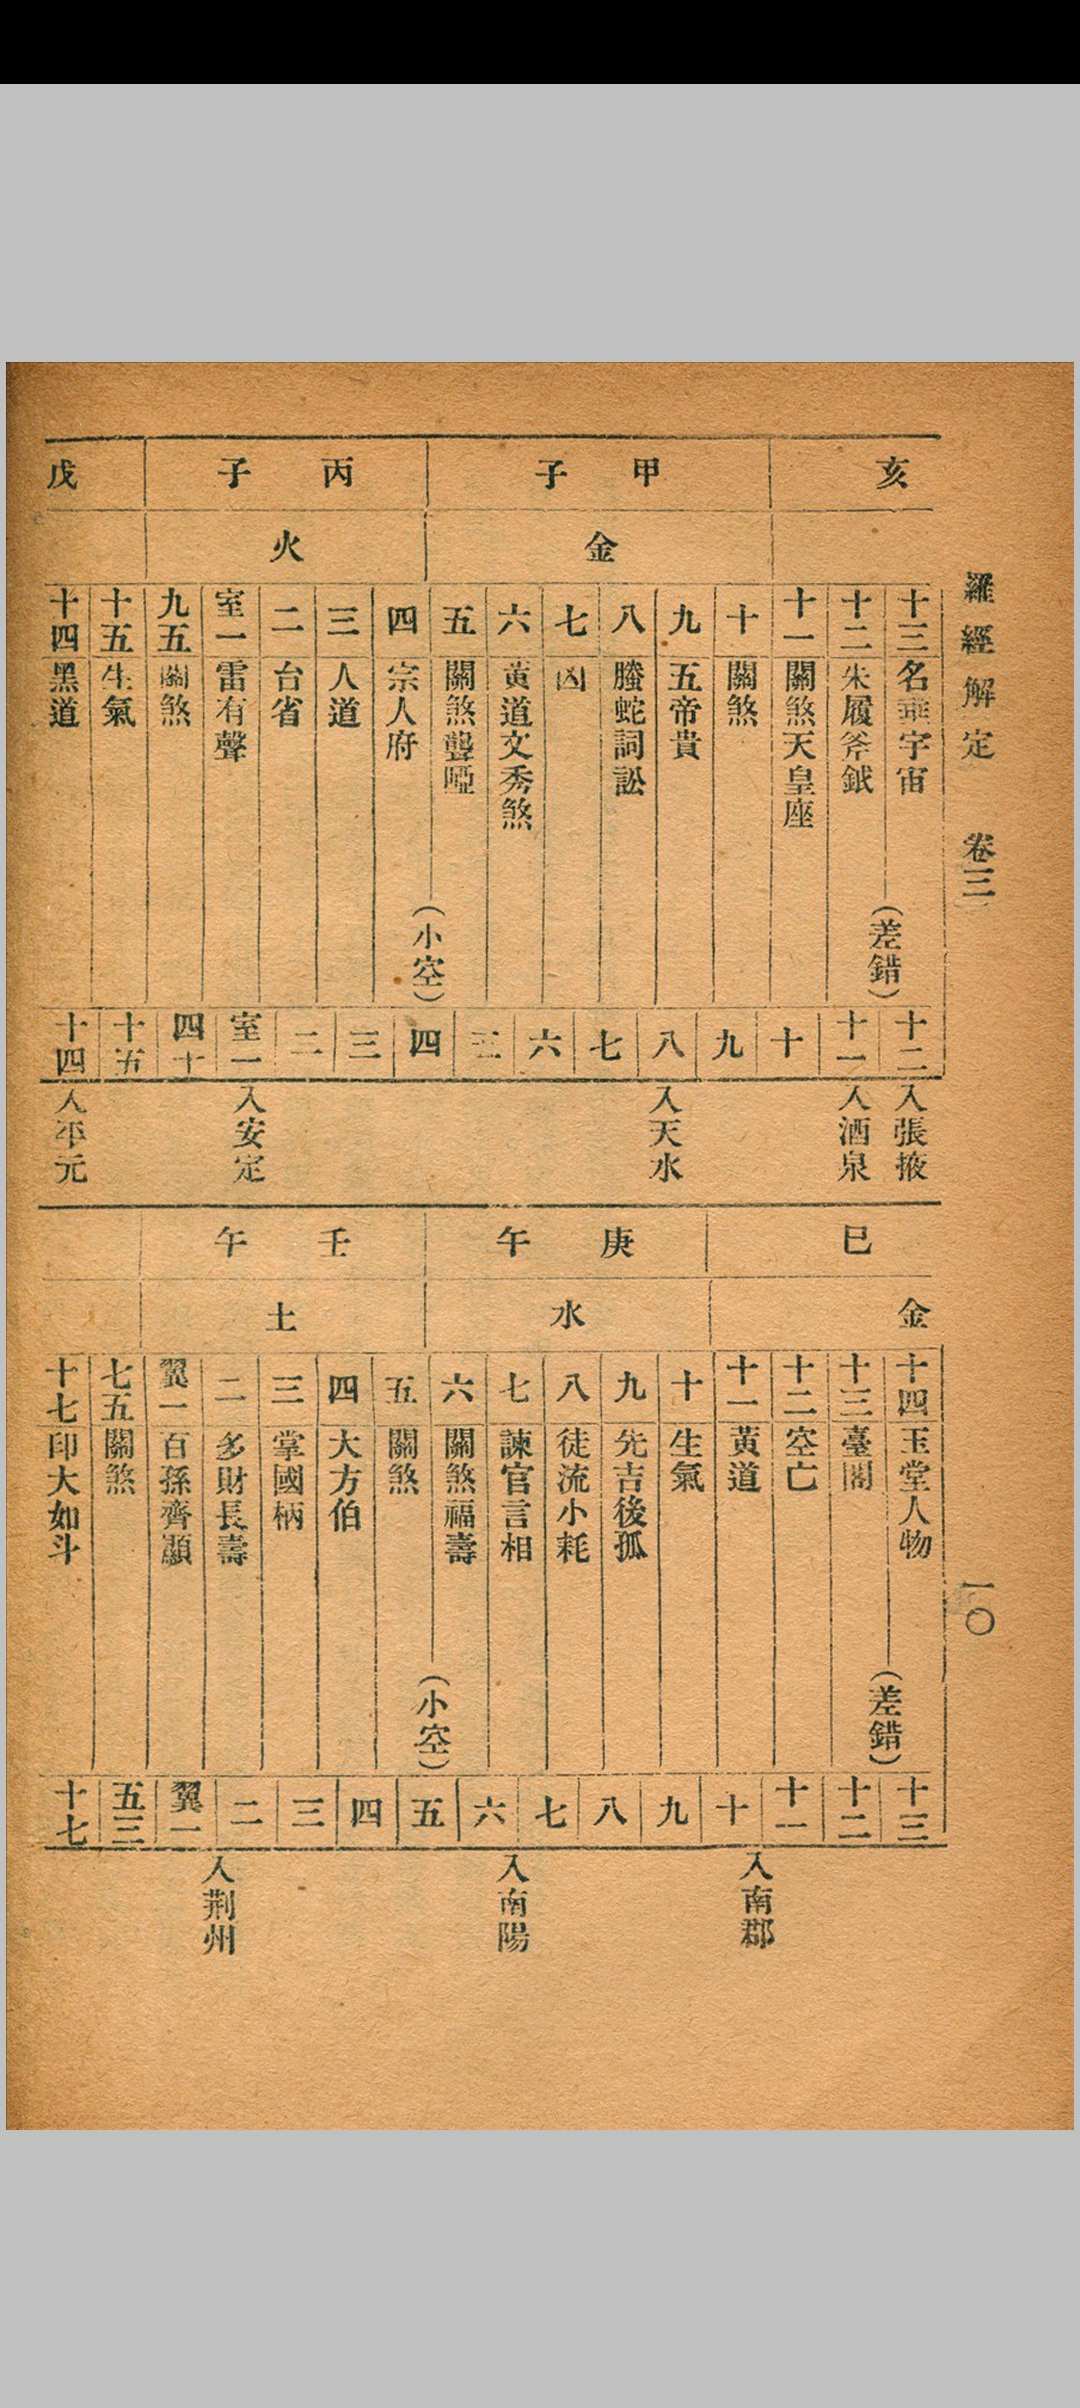 羅經解定 卷三 一〇
亥 甲子 丙子 戊
金 火
十三 名垂宇宙
十二 朱履斧鉞
十一 關煞天皇座
十 關煞
九 五帝貴
八 螣蛇詞訟
七 凶
六 黃道文秀煞
五 關煞聾啞
四 宗人府
三 人道
二 台省
室一 雷有聲
九五 關煞
十五 生氣
十四 黑道
(差錯) (小空)
十二 十一 十 九 八 七 六 五 四 三 二 室一 四十 十五 十四
入張掖 入酒泉 入天水 入安定 入平元
巳 庚午 壬午
金 水 土
十四 玉堂人物
十三 臺閣
十二 空亡
十一 黃道
十 生氣
九 先吉後孤
八 徒流小耗
七 諫官言相
六 關煞福壽
五 關煞
四 大方伯
三 掌國柄
二 多財長壽
翼一 百孫齊顯
七五 關煞
十七 印大如斗
(差錯) (小空)
十三 十二 十一 十 九 八 七 六 五 四 三 二 翼一 五三 十七
入南郡 入南陽 入荆州